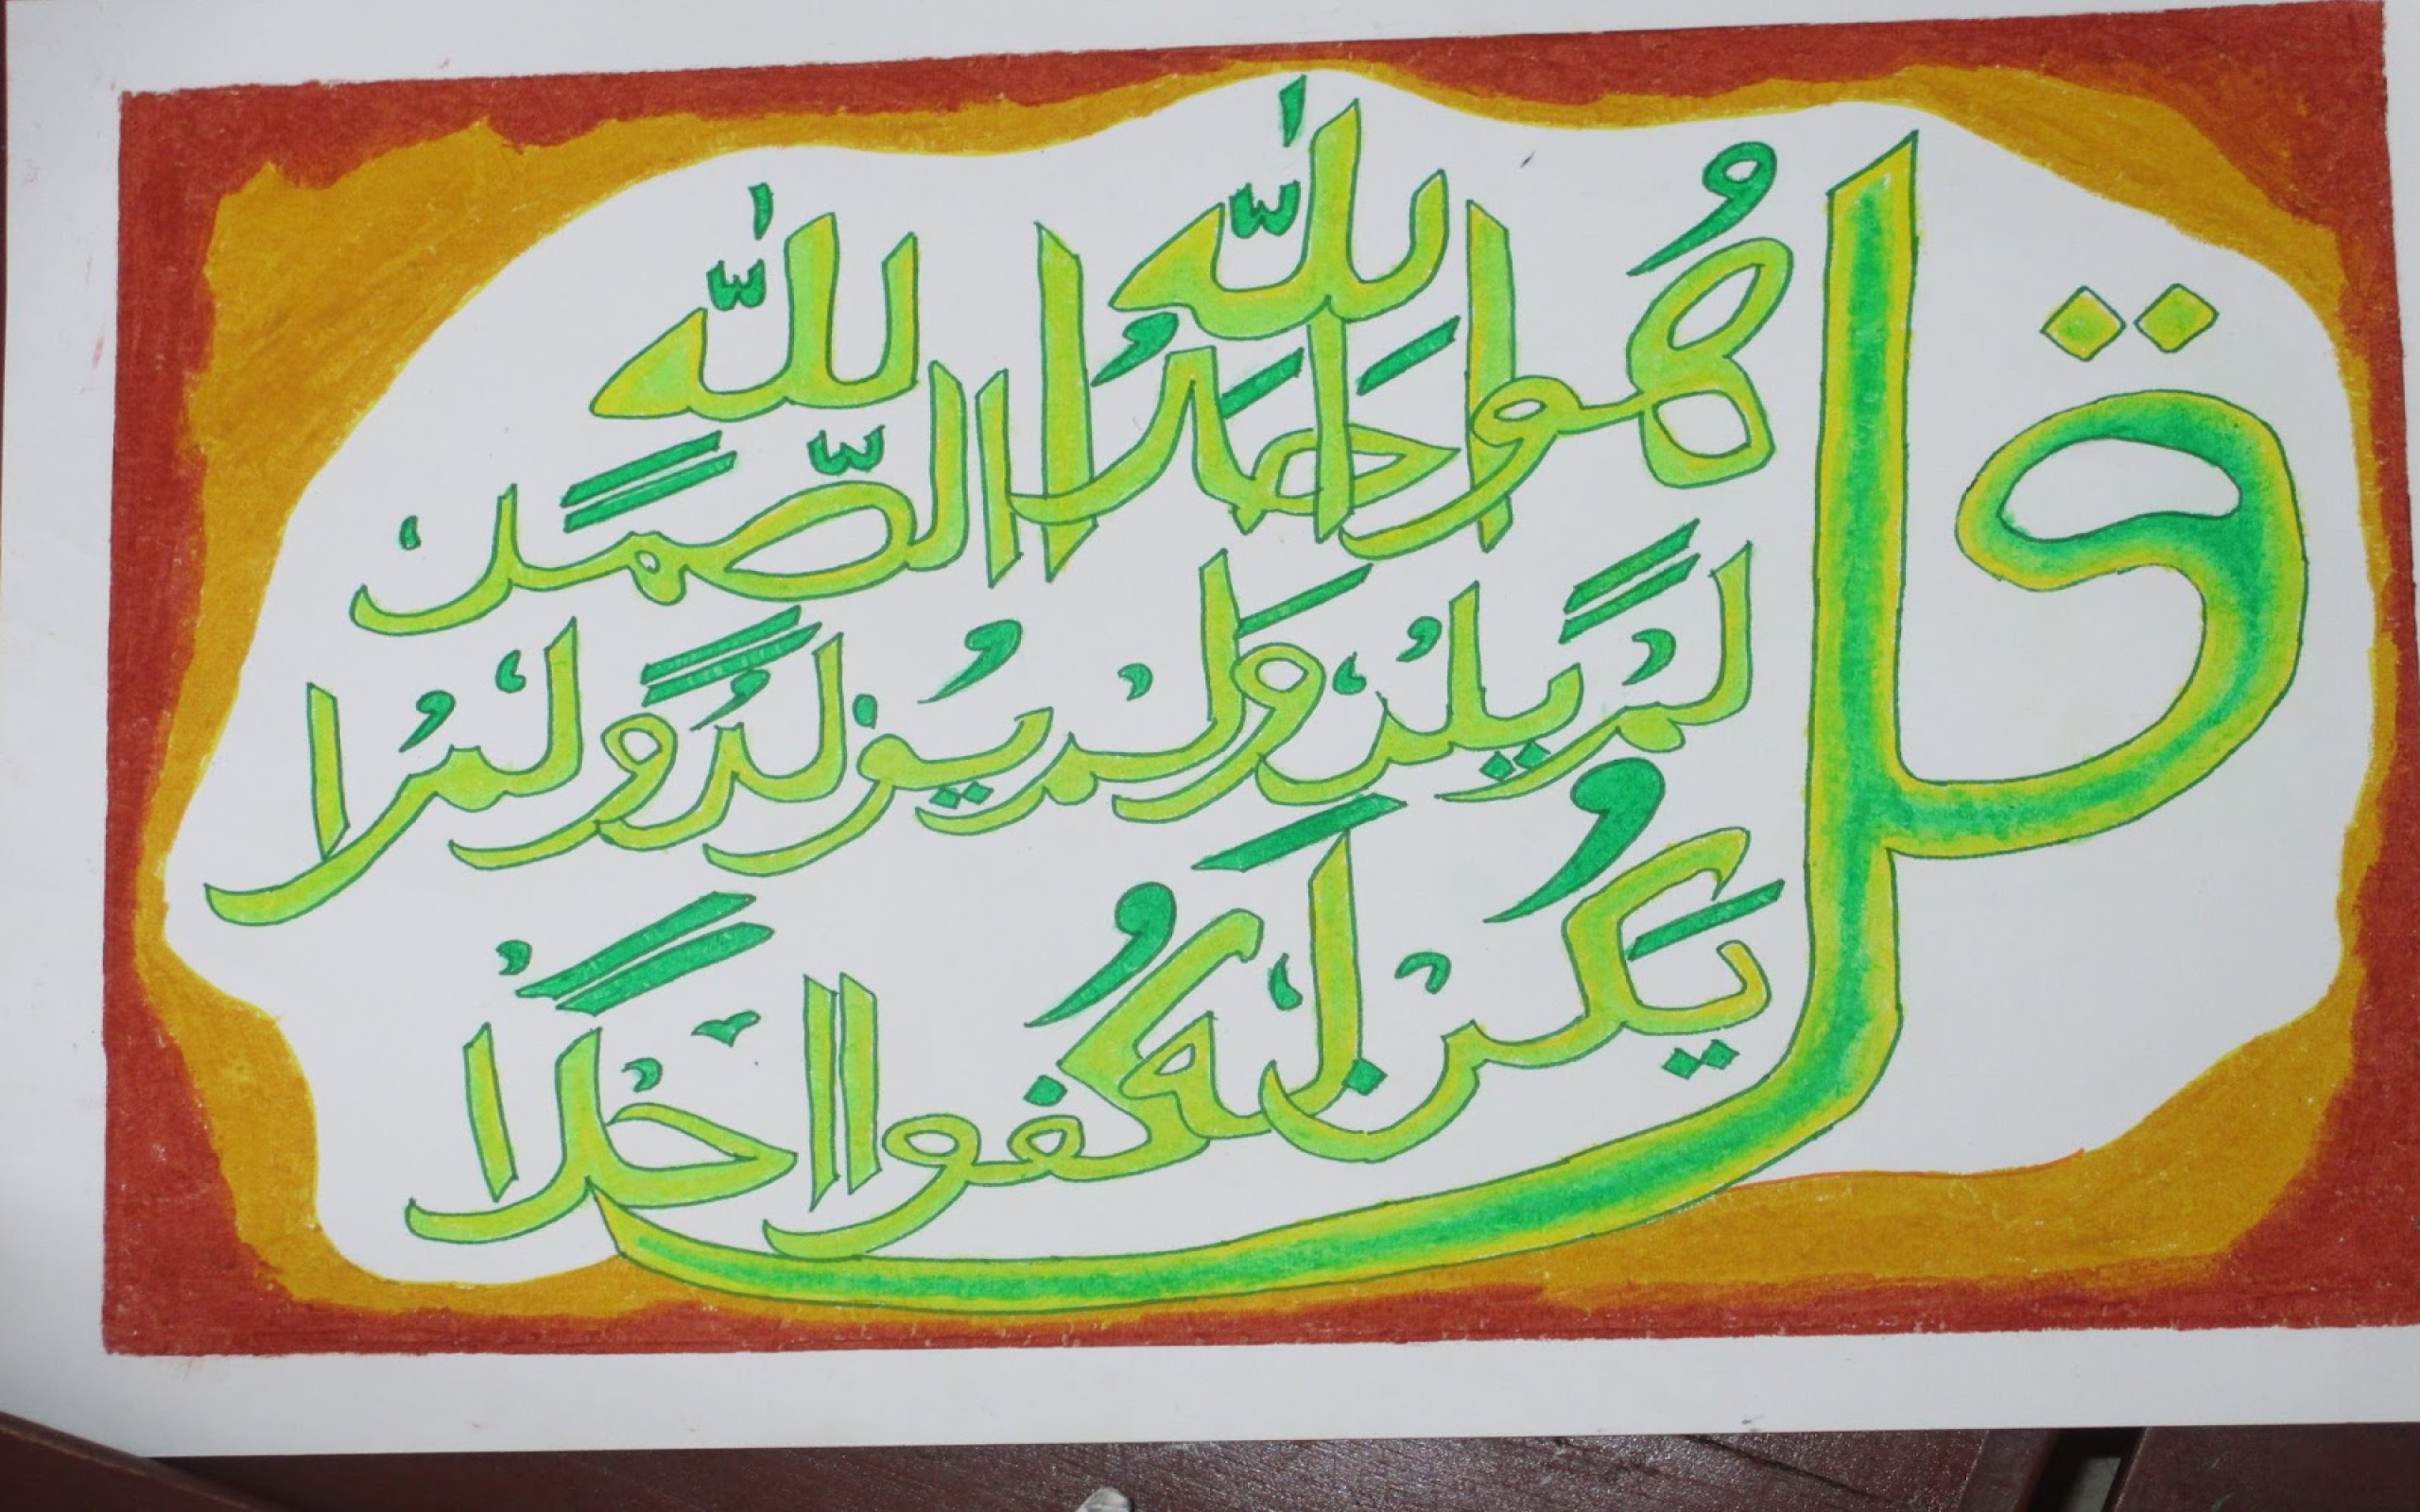 قل هو الله احد الله الصمد
لم يلد ولم يولد ولم
يكن له كفوا احد